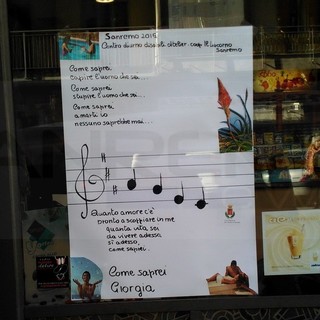 Sanremo 2015
Centro diurno disabili
Sanremo
Come saprei
stupire l'uomo che sei...
Come saprei
stupire l'uomo che sei...
Come saprei
amarti io
nessuno saprebbe mai...
Quanto amore c'è
pronto a scoppiare in me
quanta vita sei
da vivere adesso,
sì adesso,
come saprei.
Come saprei
Giorgia